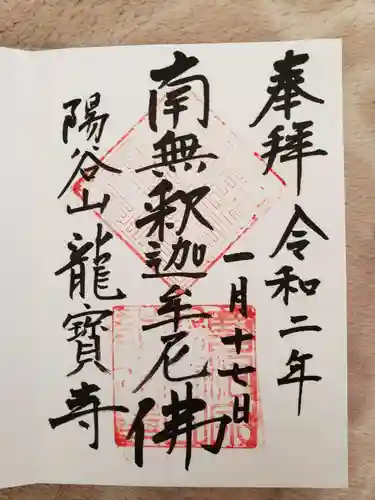 奉拝 令和二年
一月十七日
南無釈迦牟尼佛
陽谷山龍寶寺